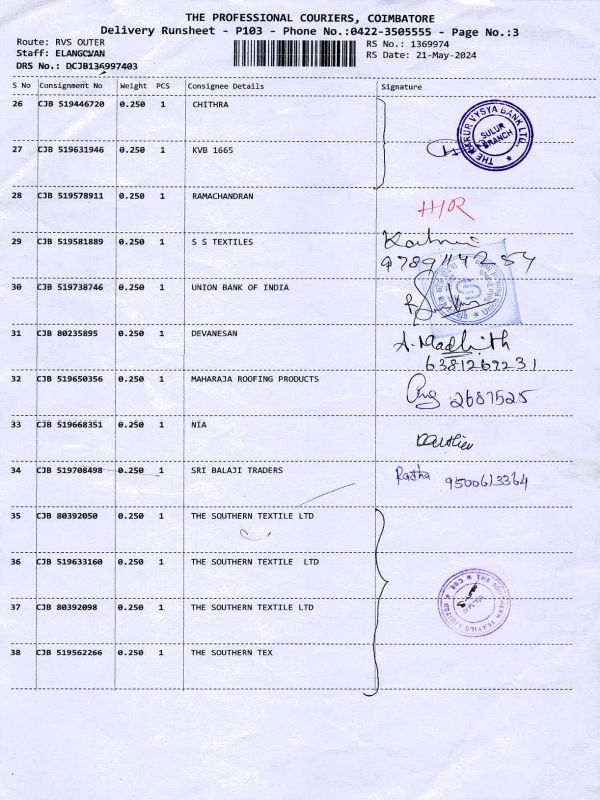 THE PROFESSIONAL COURIERS, COIMBATORE
Delivery Runsheet - P103 - Phone No.:0422-3505555 - Page No.:3
Route: RVS OUTER
RS No.: 1369974
Staff: ELANGOVAN
RS Date: 21-May-2024
DRS No.: DCJB136997403
S No Consignment No Weight PCS Consignee Details Signature
26 CJB 519446720 0.250 1 CHITHRA
THE KARUR VYSYA BANK LTD.
SULUR
BRANCH
27 CJB 519631946 0.250 1 KVB 1665
28 CJB 519578911 0.250 1 RAMACHANDRAN
29 CJB 519581889 0.250 1 S S TEXTILES
30 CJB 519738746 0.250 1 UNION BANK OF INDIA
31 CJB 80235895 0.250 1 DEVANESAN A. Madhith
6381269231
32 CJB 519650356 0.250 1 MAHARAJA ROOFING PRODUCTS 2687525
33 CJB 519668351 0.250 1 NIA
34 CJB 519708498 0.250 1 SRI BALAJI TRADERS Radha 9500613364
35 CJB 80392050 0.250 1 THE SOUTHERN TEXTILE LTD
36 CJB 519633160 0.250 1 THE SOUTHERN TEXTILE LTD
37 CJB 80392098 0.250 1 THE SOUTHERN TEXTILE LTD
38 CJB 519562266 0.250 1 THE SOUTHERN TEX